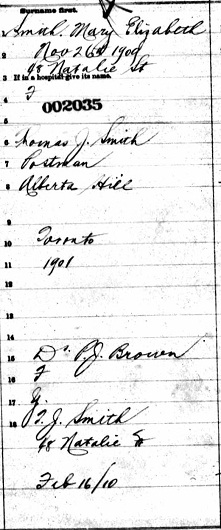 Surname first.
Smith. Mary Elizabeth
2 Nov 26th 1909
48 Natalie St
3 If in a hospital give its name.
4 F
002035
5
6 Thomas J. Smith
7 Postman
8 Alberta Hill
9
10 Toronto
11 1901
12
13
14
15 Dr. P.J. Brown
16 F
17 Y.
18 T. J. Smith
48 Natalie St
Feb 16/10